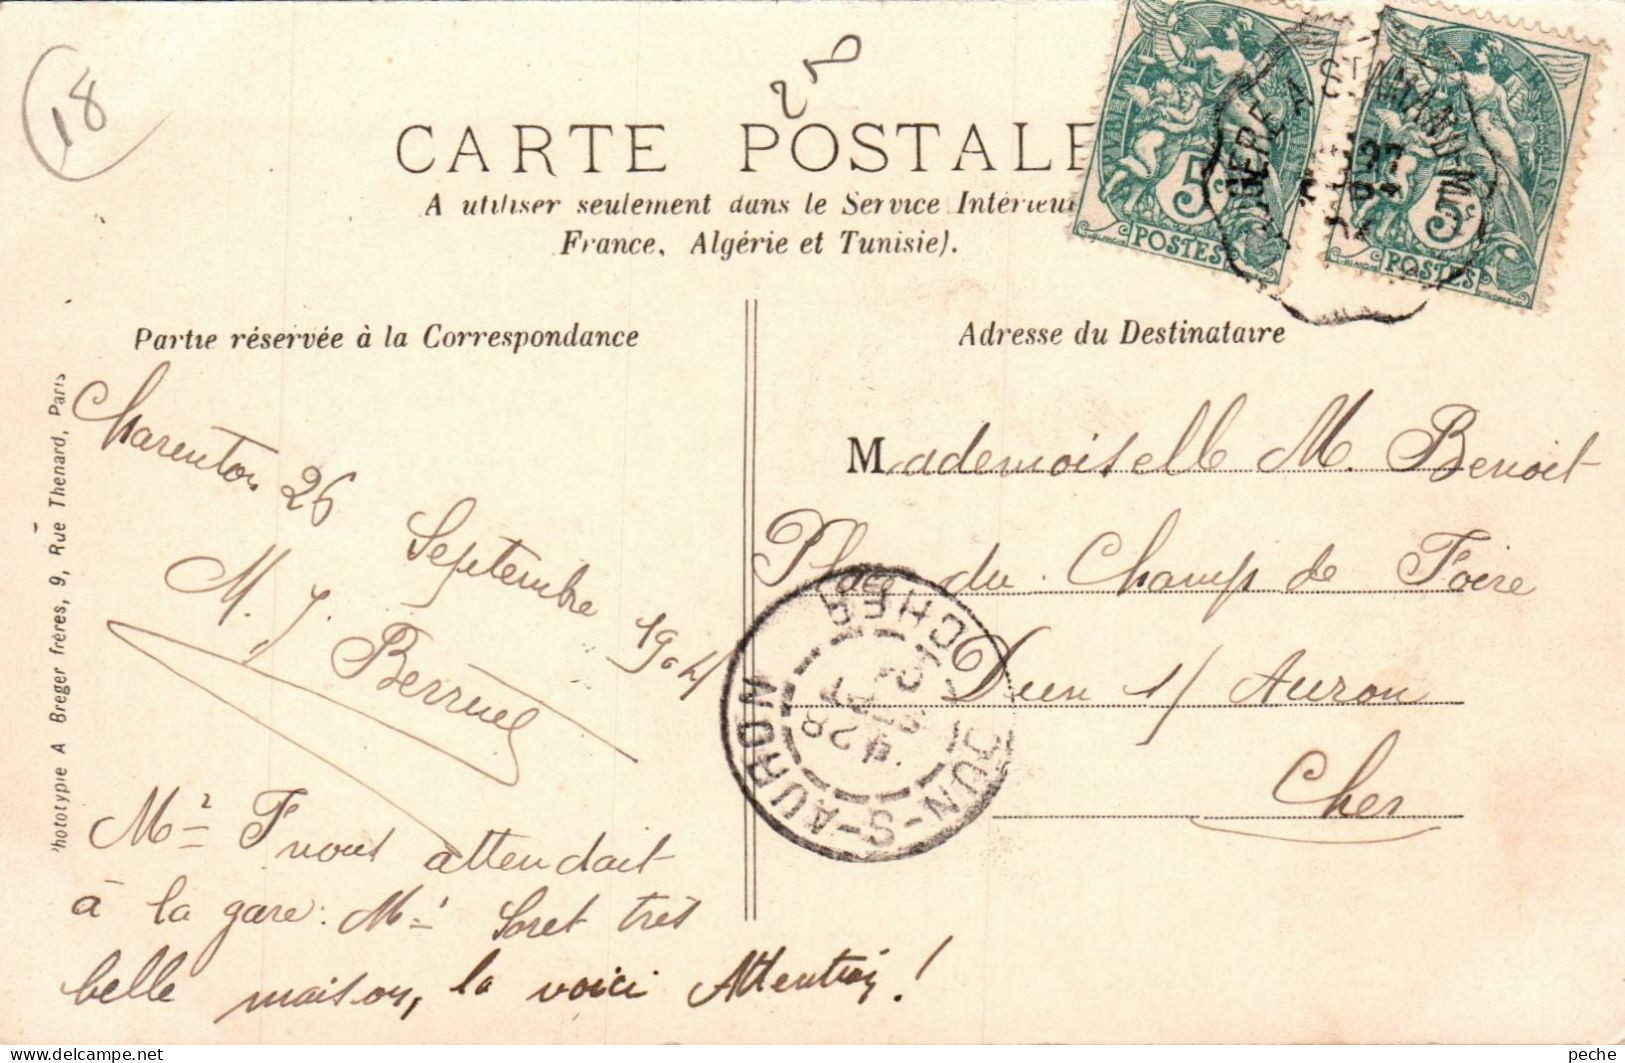 18
CARTE POSTALE
A utiliser seulement dans le Service Intérieur
France, Algérie et Tunisie).
5c
POSTES
5c
POSTES
A ST AMAND-M
Partie réservée à la Correspondance
Adresse du Destinataire
Phototype A Breger frères, 9, Rue Thenard, Paris
Charenton 26 Septembre 1904
M. J. Berruel
Mr 2 F vous attendait
à la gare: Mr 1 Soret très
belle maison, la voici Attention!
Mademoiselle M. Benoit
Place du Champ de Foire
Dun s/ Auron
Cher
DUN-S-AURON
CHER
28
peche